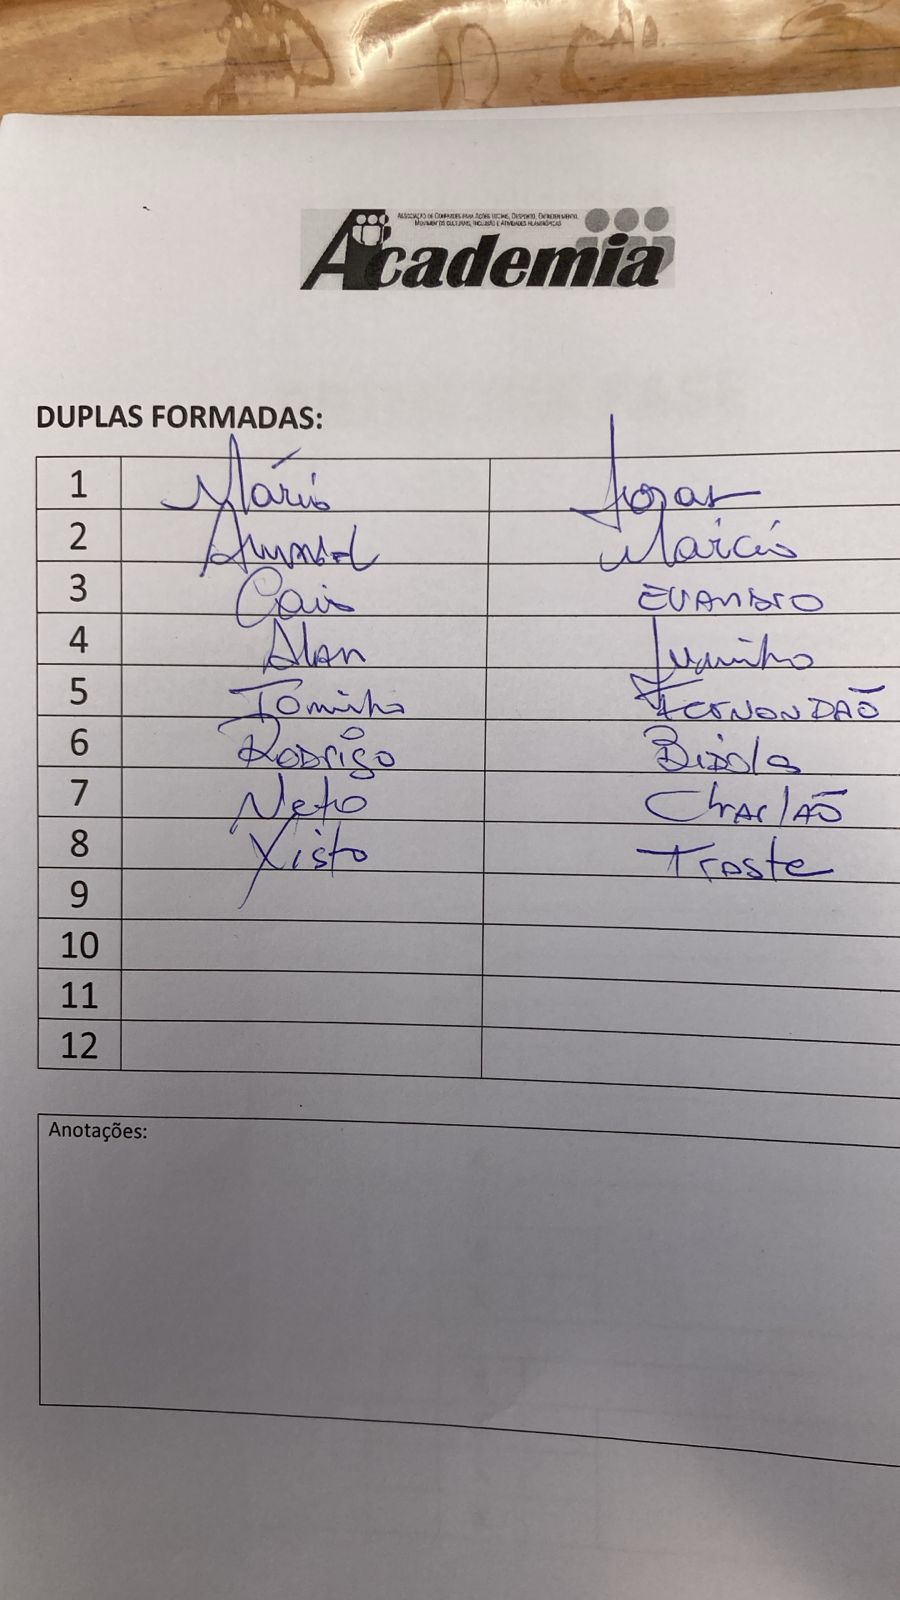 ASSOCIAÇÃO DE CONFRADES PARA AÇÕES SOCIAIS, DESPORTO, ENTRETENIMENTO,
MOVIMENTOS CULTURAIS, INCLUSÃO E ATIVIDADES FILANTRÓPICAS
Academia
DUPLAS FORMADAS:
1 Mário
2 Marcio
3 Caio EVANDRO
4 Alan Juninho
5 Toninho FERNANDÃO
6 RODRIGO
7 Neto CharlÃO
8 Xisto Traste
9
10
11
12
Anotações: